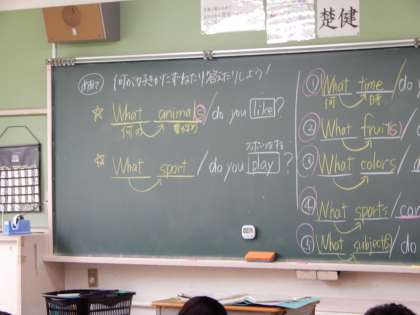 楚健
何が好きかたずねたり答えたりしよう!
☆ What animals / do you like?
何の 動物が
スポーツをする
☆ What sport / do you play?
① What time / do
何 時
② What fruit(s) /
③ What colors /
④ What sports /
⑤ What subject(s) / do